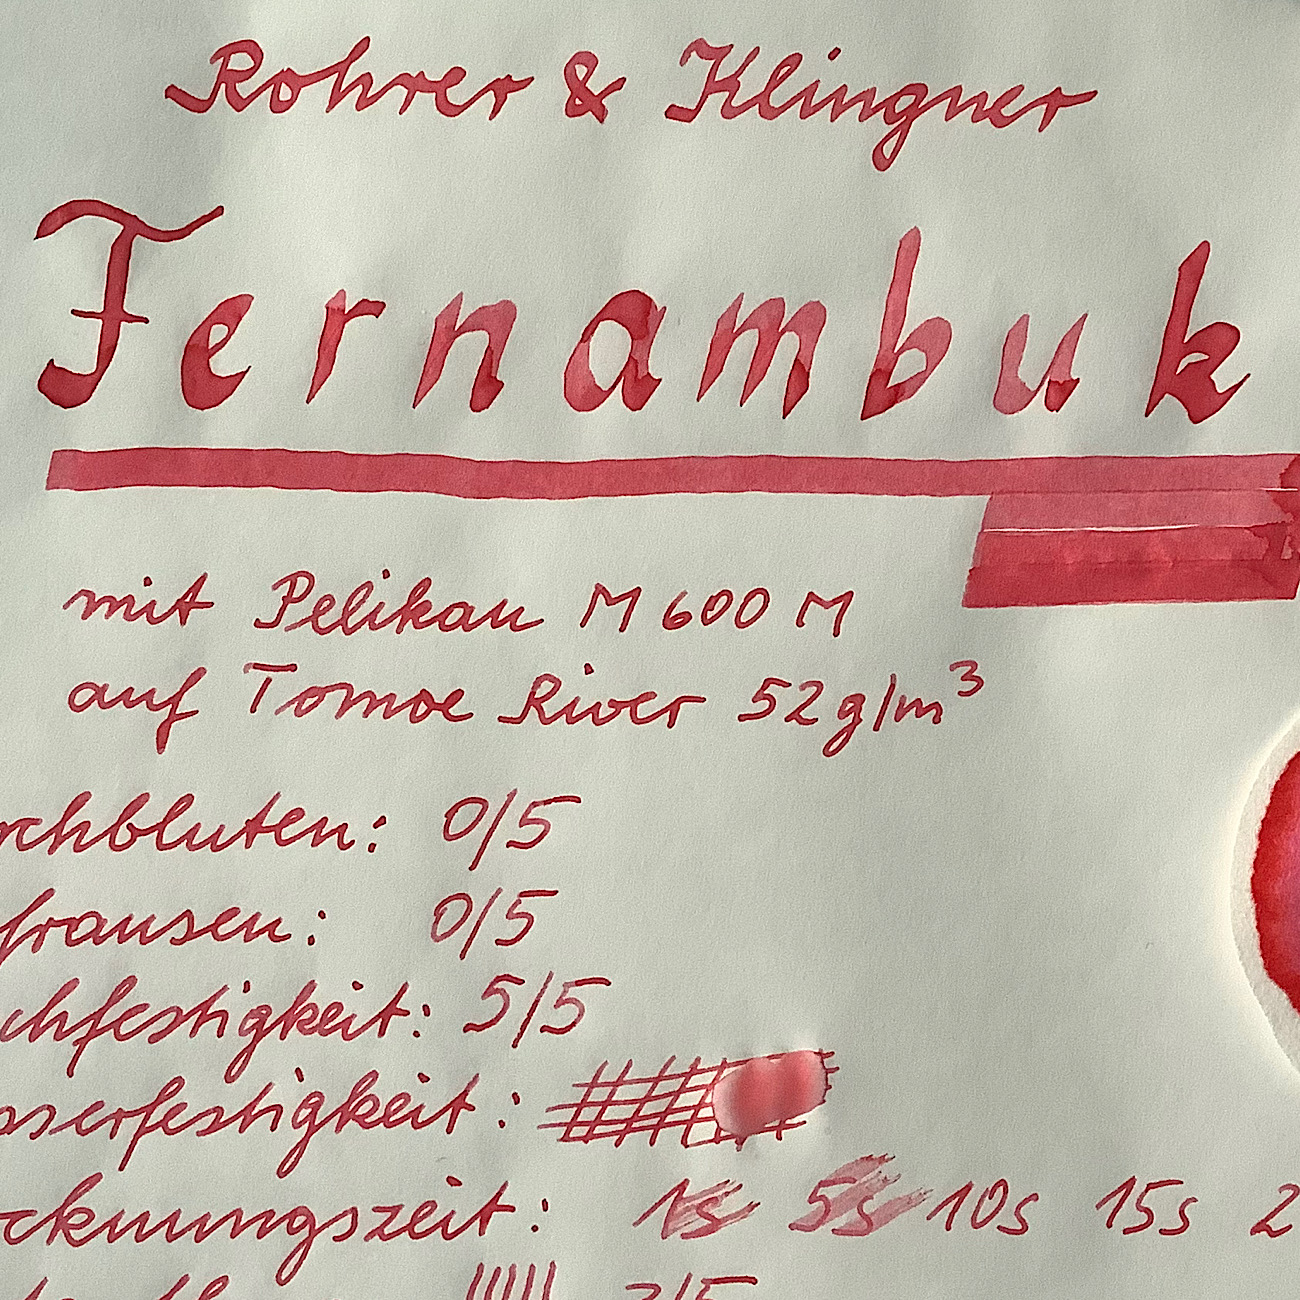 Rohrer & Klingner
Fernambuk
mit Pelikan M600 M
auf Tomoe River 52g/m³
rchbluten: 0/5
fransen: 0/5
chfestigkeit: 5/5
sserfestigkeit:
cknungszeit: 1s 5s 10s 15s 2